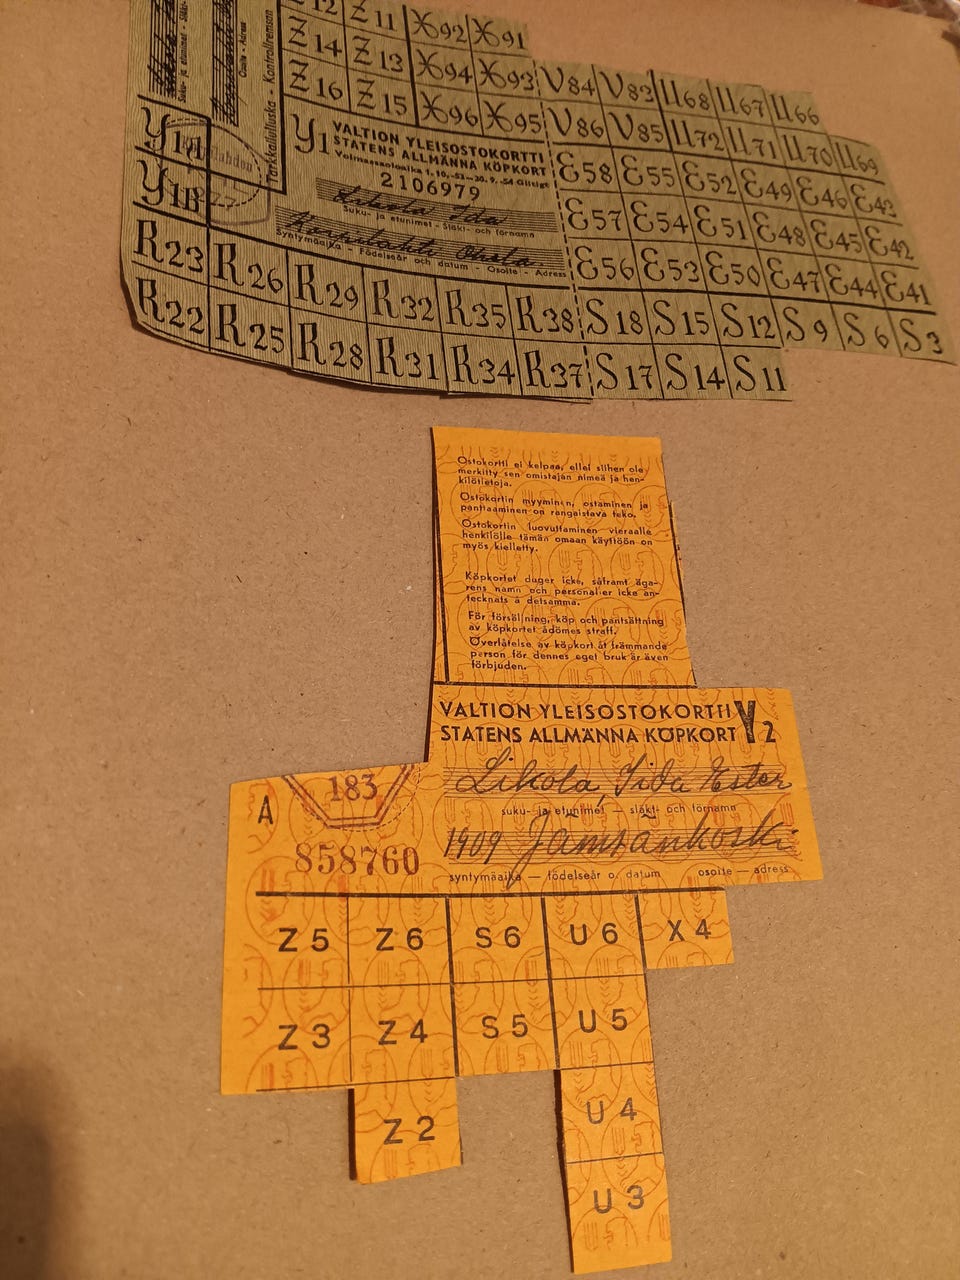 Z 12 Z 11 X 92 X 91
Z 14 Z 13 X 94 X 93 V 84 V 83 U 68 U 67 U 66
Z 16 Z 15 X 96 X 95 V 86 V 85 U 72 U 71 U 70 U 69
Suku- ja etunimet - Släkt-
Osoite - Adress
Tarkkailuliuska - Kontrollremsan
Y1A
Y1B
Y1 VALTION YLEISOSTOKORTTI
STATENS ALLMÄNNA KÖPKORT
Voimassaoloaika 1.10.-53-30.9.-54 Giltigt
2106979
Suku- ja etunimi - Släkt- och förnamn
Syntymäaika - Födelseår och datum - Osoite - Adress
E 58 E 55 E 52 E 49 E 46 E 43
E 57 E 54 E 51 E 48 E 45 E 42
E 56 E 53 E 50 E 47 E 44 E 41
R 23 R 26 R 29 R 32 R 35 R 38 S 18 S 15 S 12 S 9 S 6 S 3
R 22 R 25 R 28 R 31 R 34 R 37 S 17 S 14 S 11
Ostokortti ei kelpaa, ellei siihen ole
merkitty sen omistajan nimeä ja hen-
kilötietoja.
Ostokortin myyminen, ostaminen ja
panttaaminen on rangaistava teko.
Ostokortin luovuttaminen vieraalle
henkilölle tämän omaan käyttöön on
myös kielletty.
Köpkortet duger icke, såframt äga-
rens namn och personalier icke an-
tecknats å detsamma.
För försäljning, köp och pantsättning
av köpkortet ådömes straff.
Överlåtelse av köpkort åt främmande
person för dennes eget bruk är även
förbjuden.
VALTION YLEISOSTOKORTTI Y 2
STATENS ALLMÄNNA KÖPKORT
Likola, Iida Ester
suku- ja etunimet — släkt- och förnamn
1909 Jämsänkoski
syntymäaika — födelseår o. datum osoite — adress
A 183
858760
Z 5 Z 6 S 6 U 6 X 4
Z 3 Z 4 S 5 U 5
Z 2 U 4
U 3